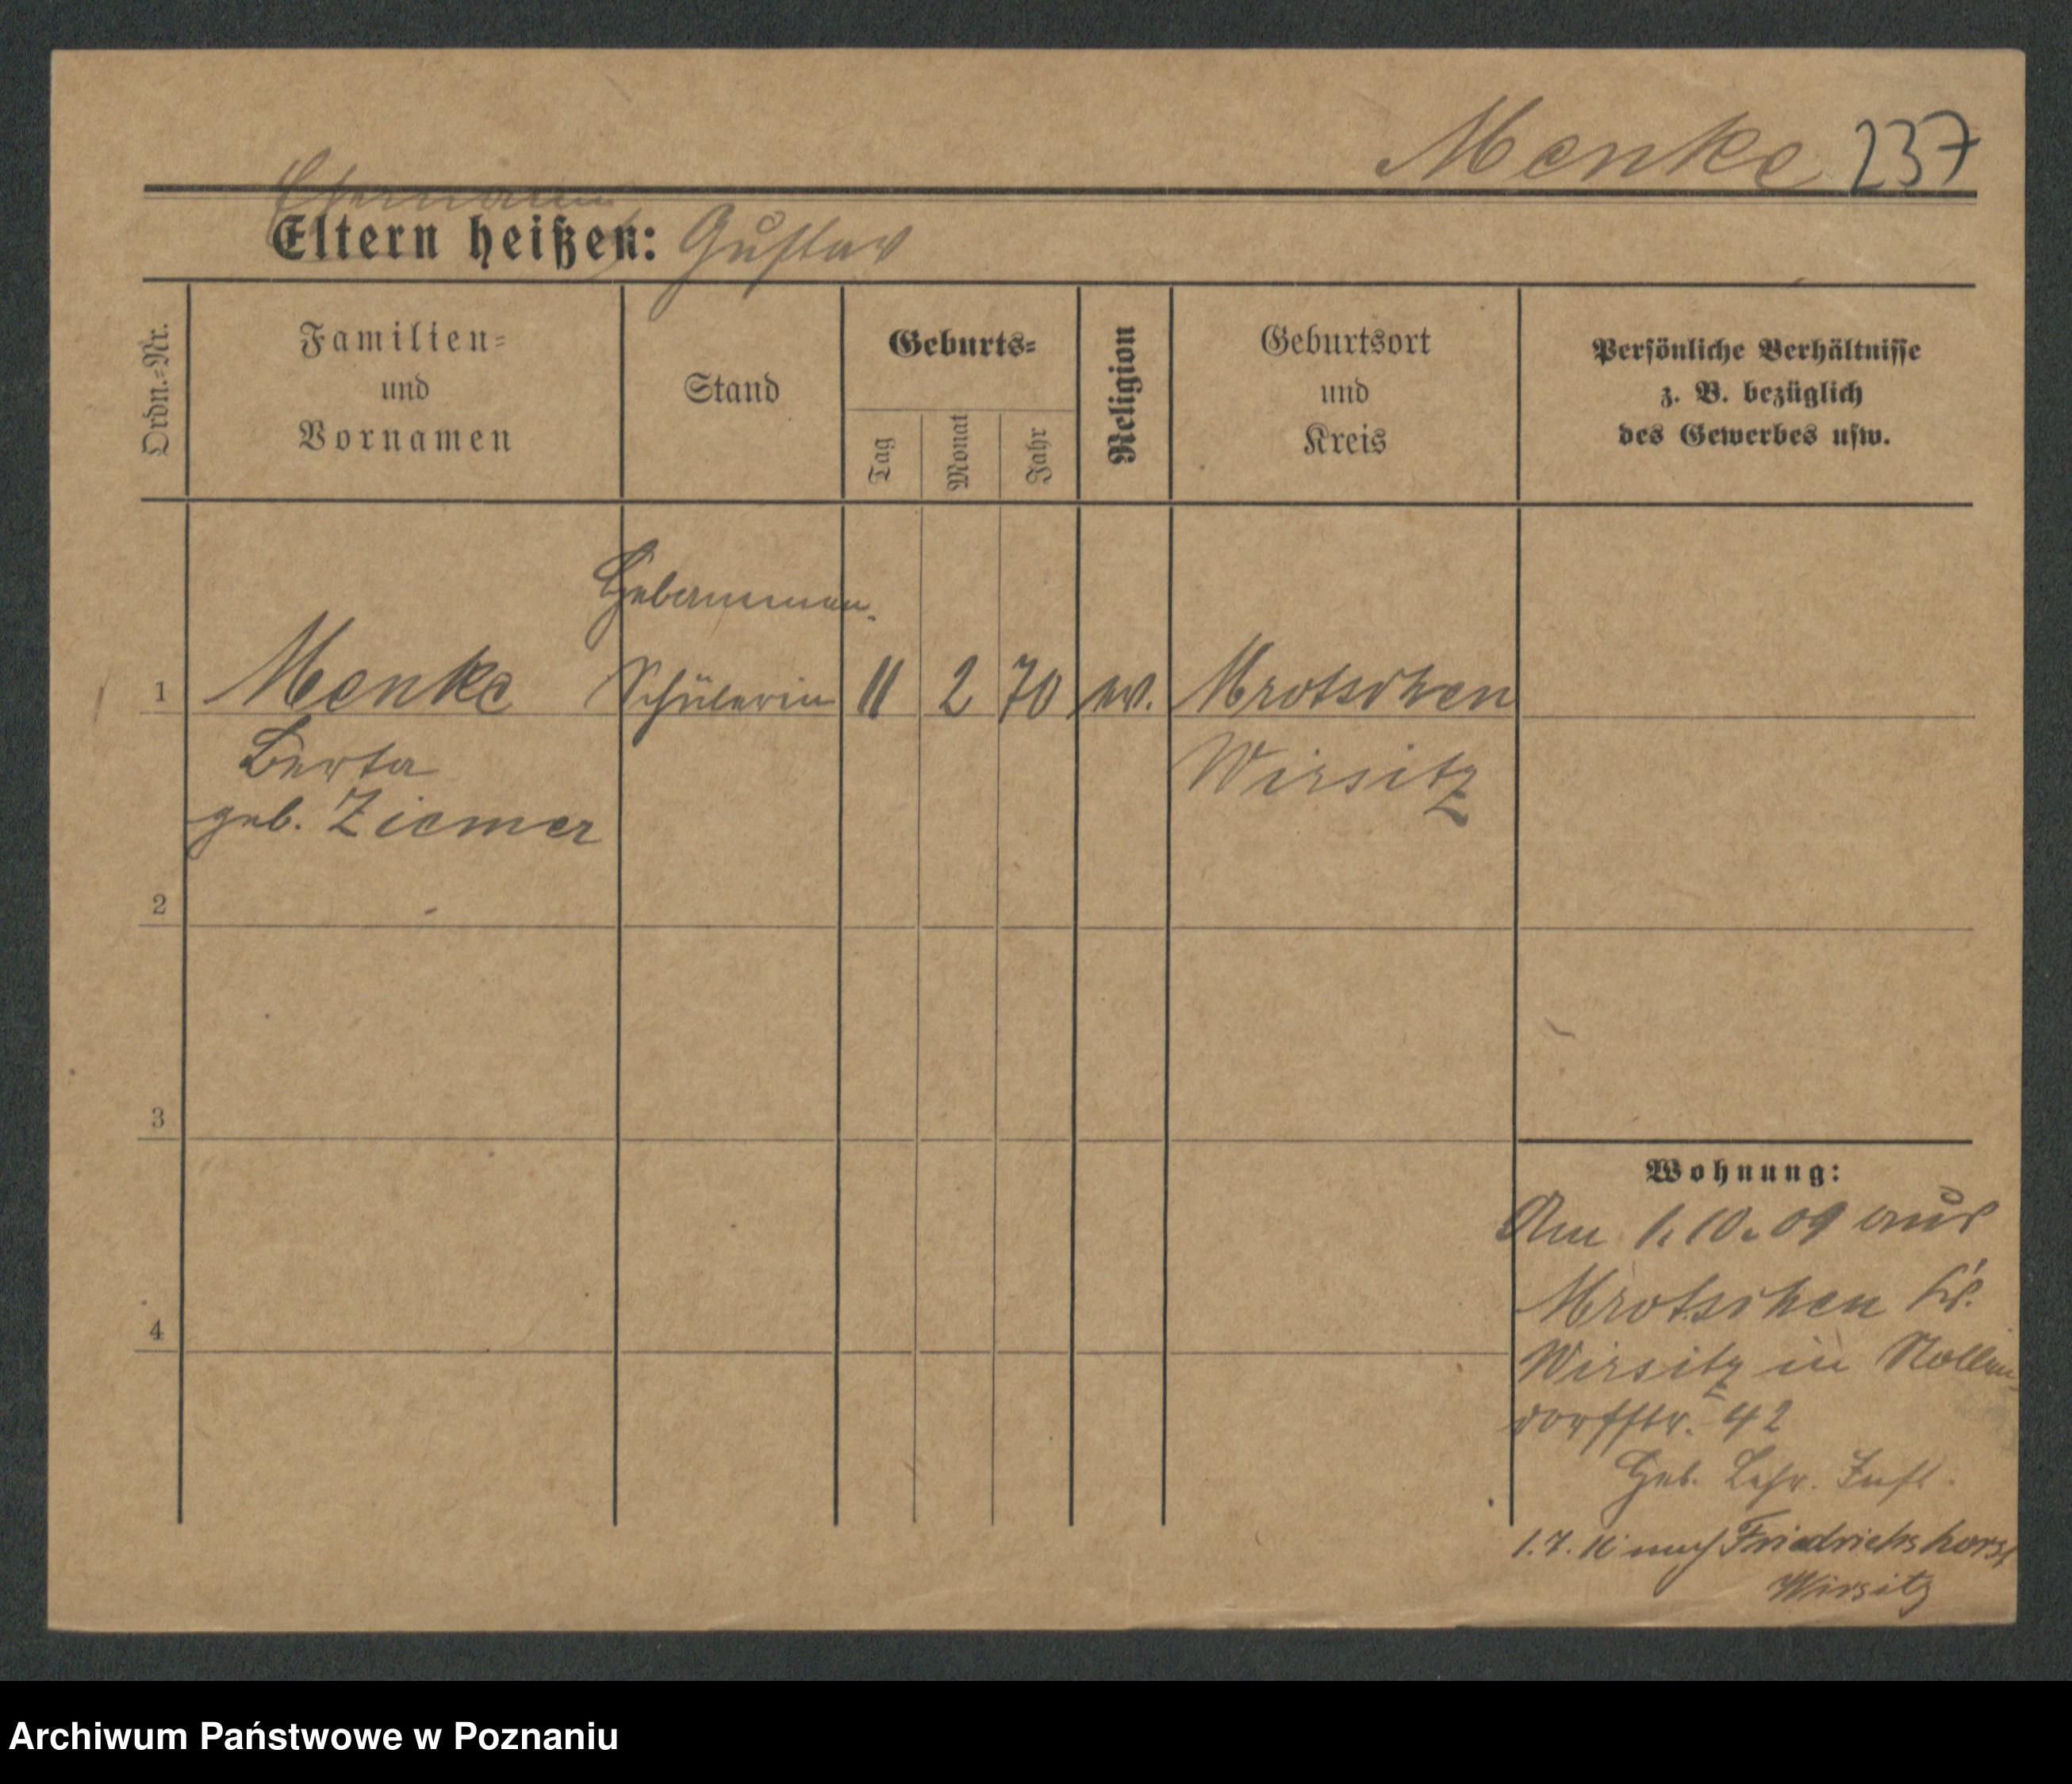 Menke 237
Ehemann
Eltern heißen: Gustav
Ordn.=Nr.
Familien=
und
Vornamen
Stand
Geburts=
Tag
Monat
Jahr
Religion
Geburtsort
und
Kreis
Persönliche Verhältnisse
z. B. bezüglich
des Gewerbes usw.
Hebammen-
1 Menke Schülerin 11 2 70 ev. Mrotschen
Berta Wirsitz
geb. Ziemer
2
3
4
Wohnung:
Am 1.10.09 aus
Mrotschen Kr.
Wirsitz in Nollen-
dorfstr. 42
Heb. Lehr. Inst.
1.7.10 nach Friedrichshorst
Wirsitz
Archiwum Państwowe w Poznaniu